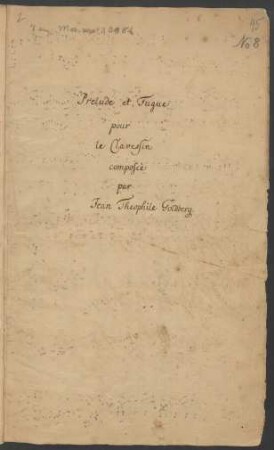 45
No 8
Prelude et Fugue
pour
le Clavessin
composée
par
Jean Theophile Goldberg